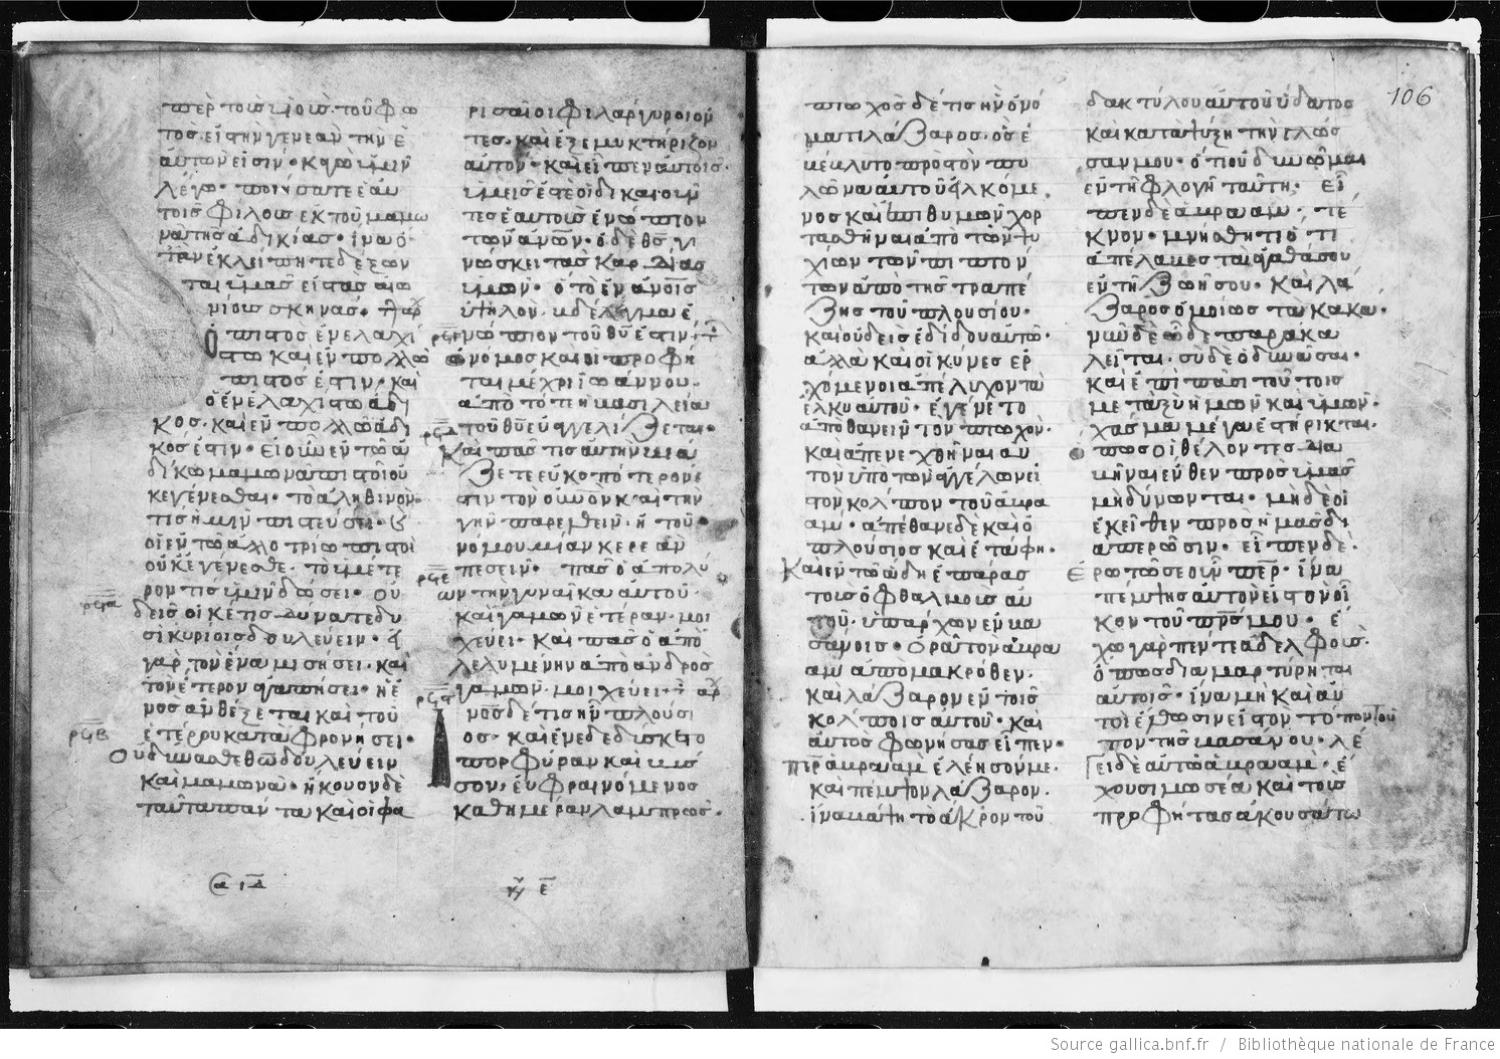 περ τοὺς υἱοὺς τοῦ φω
τὸς εἰς τὴν γενεὰν τὴν ἑ
αυτῶν εἰσιν· κἀγὼ ὑμῖν
λέγω· ποιήσατε ἑαυ
τοῖς φίλους ἐκ τοῦ μαμω
νᾶ τῆς ἀδικίας· ἵνα ὅ
ταν ἐκλειπητε δέξων
ται ὑμᾶς εἰς τὰς αἰω
νίους σκηνάς·
Ὁ πιστὸς ἐν ἐλαχί
στω καὶ ἐν πολλῶ
πιστός ἐστιν· καὶ
ὁ ἐν ἐλαχίστω ἄδι
κος· καὶ ἐν πολλῶ ἄδι
κός ἐστιν· εἰ οὖν ἐν τῶ ἀ
δίκω μαμωνᾶ πιστοὶ οὐ
κ ἐγένεσθαι· τὸ ἀληθινὸν
τίς ἡμῖν πιστεύσει·
εἰ ἐν τῶ ἀλλοτρίω πιστοὶ
οὐκ ἐγένεσθε· τὸ ὑμέτε
ρον τίς ὑμῖν δώσει· ου
δεὶς οἰκέτις δύναται δυ
σὶ κυρίοις δουλεύειν· ἢ
γὰρ τὸν ἕνα μισήσει· καὶ
τὸν ἕτερον ἀγαπήσει· ἢ ἑ
νὸς ἀνθέξεται καὶ τοῦ
ἑτέρου καταφρονήσει·
Οὐ δύνασθε θῶ δουλεύειν
καὶ μαμωνᾶ· ἤκουον δὲ
ταῦτα πάντα καὶ οἱ φα
ρισαῖοι φιλάργυροι ὄν
τες· καὶ ἐξεμυκτήριζον
αὐτόν· καὶ εἶπεν αὐτοῖς·
ὑμεῖς ἐστὲ οἱ δικαιοῦν
τες ἑαυτοὺς ἐνώπιον
τῶν ἀνων· ὁ δὲ θς γι
νώσκει τὰς καρδίας
ὑμῶν· ὅτι τὸ ἐν ἀνοις
ὑψηλὸν· βδέλυγμα ἐ
νώπιον τοῦ θυ ἐστιν
ὁ νόμος καὶ οἱ προφῆ
ται μέχρι ἰωάννου·
ἀπὸ τότε ἡ βασιλεία
τοῦ θυ εὐαγγελίζεται·
Καὶ πᾶς εἰς αὐτὴν βιά
ζεται εὐκοπότερον ἐ
στιν τὸν οὐνὸν καὶ τὴν
γῆν παρελθεῖν· ἢ τοῦ
νόμου μίαν κερεαν
πεσεῖν· πᾶς ὁ ἀπολύ
ων τὴν γυναῖκα αὐτοῦ
καὶ γαμῶν ἑτέραν· μοι
χεύει· καὶ πᾶς ὁ ἀπο
λελυμένην ἀπὸ ἀνδρὸς
γαμῶν· μοιχεύει·
Ανος δέ τις ἦν πλούσι
ος· καὶ ἐνεδεδισκετο
πορφύραν καὶ βύσ
σον· εὐφραινόμενος
καθημέραν λαμπρῶς·
106
πτωχὸς δέ τις ἦν ὀνό
ματι λάζαρος· ὃς ἐ
βέβλητο πρὸς τὸν πυ
λῶνα αὐτοῦ ἡλκωμέ
νος καὶ ἐπιθυμῶν χορ
τασθῆναι ἀπὸ τῶν ψι
χίων τῶν πιπτόν
των ἀπὸ τῆς τραπέ
ζης τοῦ πλουσίου·
καὶ οὐδεὶς ἐδίδου αὐτῶ·
ἀλλὰ καὶ οἱ κύνες ἐρ
χόμενοι ἀπέλιχον τὰ
ἕλκη αὐτοῦ· ἐγένετο
ἀποθανεῖν τὸν πτωχόν·
καὶ ἀπενεχθῆναι αυ
τὸν ὑπὸ τῶν ἀγγέλων εἰς
τὸν κόλπον τοῦ ἀβρα
αμ· ἀπέθανε δὲ καὶ ὁ
πλούσιος καὶ ἐτάφη·
Καὶ ἐν τῶ ἅδη ἐπάρας
τοὺς ὀφθαλμοὺς αὐ
τοῦ· ὑπάρχων ἐν βα
σάνοις· ὁρᾶ τὸν ἀβρα
αμ ἀπὸ μακρόθεν·
καὶ λάζαρον ἐν τοῖς
κόλποις αὐτοῦ· καὶ
αὐτὸς φωνήσας εἶπεν·
περ ἀβραὰμ ἐλέησόν με·
καὶ πέμψον λάζαρον·
ἵνα βάψη τὸ ἄκρον τοῦ
δακτύλου αὐτοῦ ὕδατος
καὶ καταψύξη τὴν γλῶσ
σάν μου· ὅτι ὀδυνῶμαι
ἐν τῆ φλογῆ ταύτη· εἶ
πεν δὲ ἀβρααμ· τέ
κνον· μνήσθητι ὅτι
ἀπέλαβες τὰ ἀγαθά σου
ἐν τῆ ζωῆ σου· καὶ λά
ζαρος ὁμοίως τὰ κακά·
νῦν δὲ ὧδε παρακα
λεῖται· σὺ δὲ ὀδυνᾶσαι·
καὶ ἐπὶ πᾶσι τούτοις
μεταξὺ ἡμῶν καὶ ὑμῶν·
χάσμα μέγα ἐστήρικται·
ὅπως οἱ θέλοντες δια
βῆναι ἔνθεν πρὸς ὑμᾶς
μὴ δύνωνται· μὴδὲ οἱ
ἐκεῖθεν πρὸς ἡμᾶς δι
απερῶσιν· εἶπεν δέ·
Ἐρωτῶ σε οὖν περ· ἵνα
πέμψης αὐτὸν εἰς τὸν οἶ
κον τοῦ πρς μου· ἔ
χω γὰρ πέντε ἀδελφούς·
ὅπως διαμαρτύρηται
αὐτοῖς· ἵνα μὴ καὶ αὐ
τοὶ ἔλθωσιν εἰς τὸν τόπον τοῦ
τον τῆς βασάνου· λέ
γει δὲ αὐτῶ ἀβρααμ· ἔ
χουσι μωσέα καὶ τοὺς
προφήτας ἀκουσάτω
Source gallica.bnf.fr / Bibliothèque nationale de France